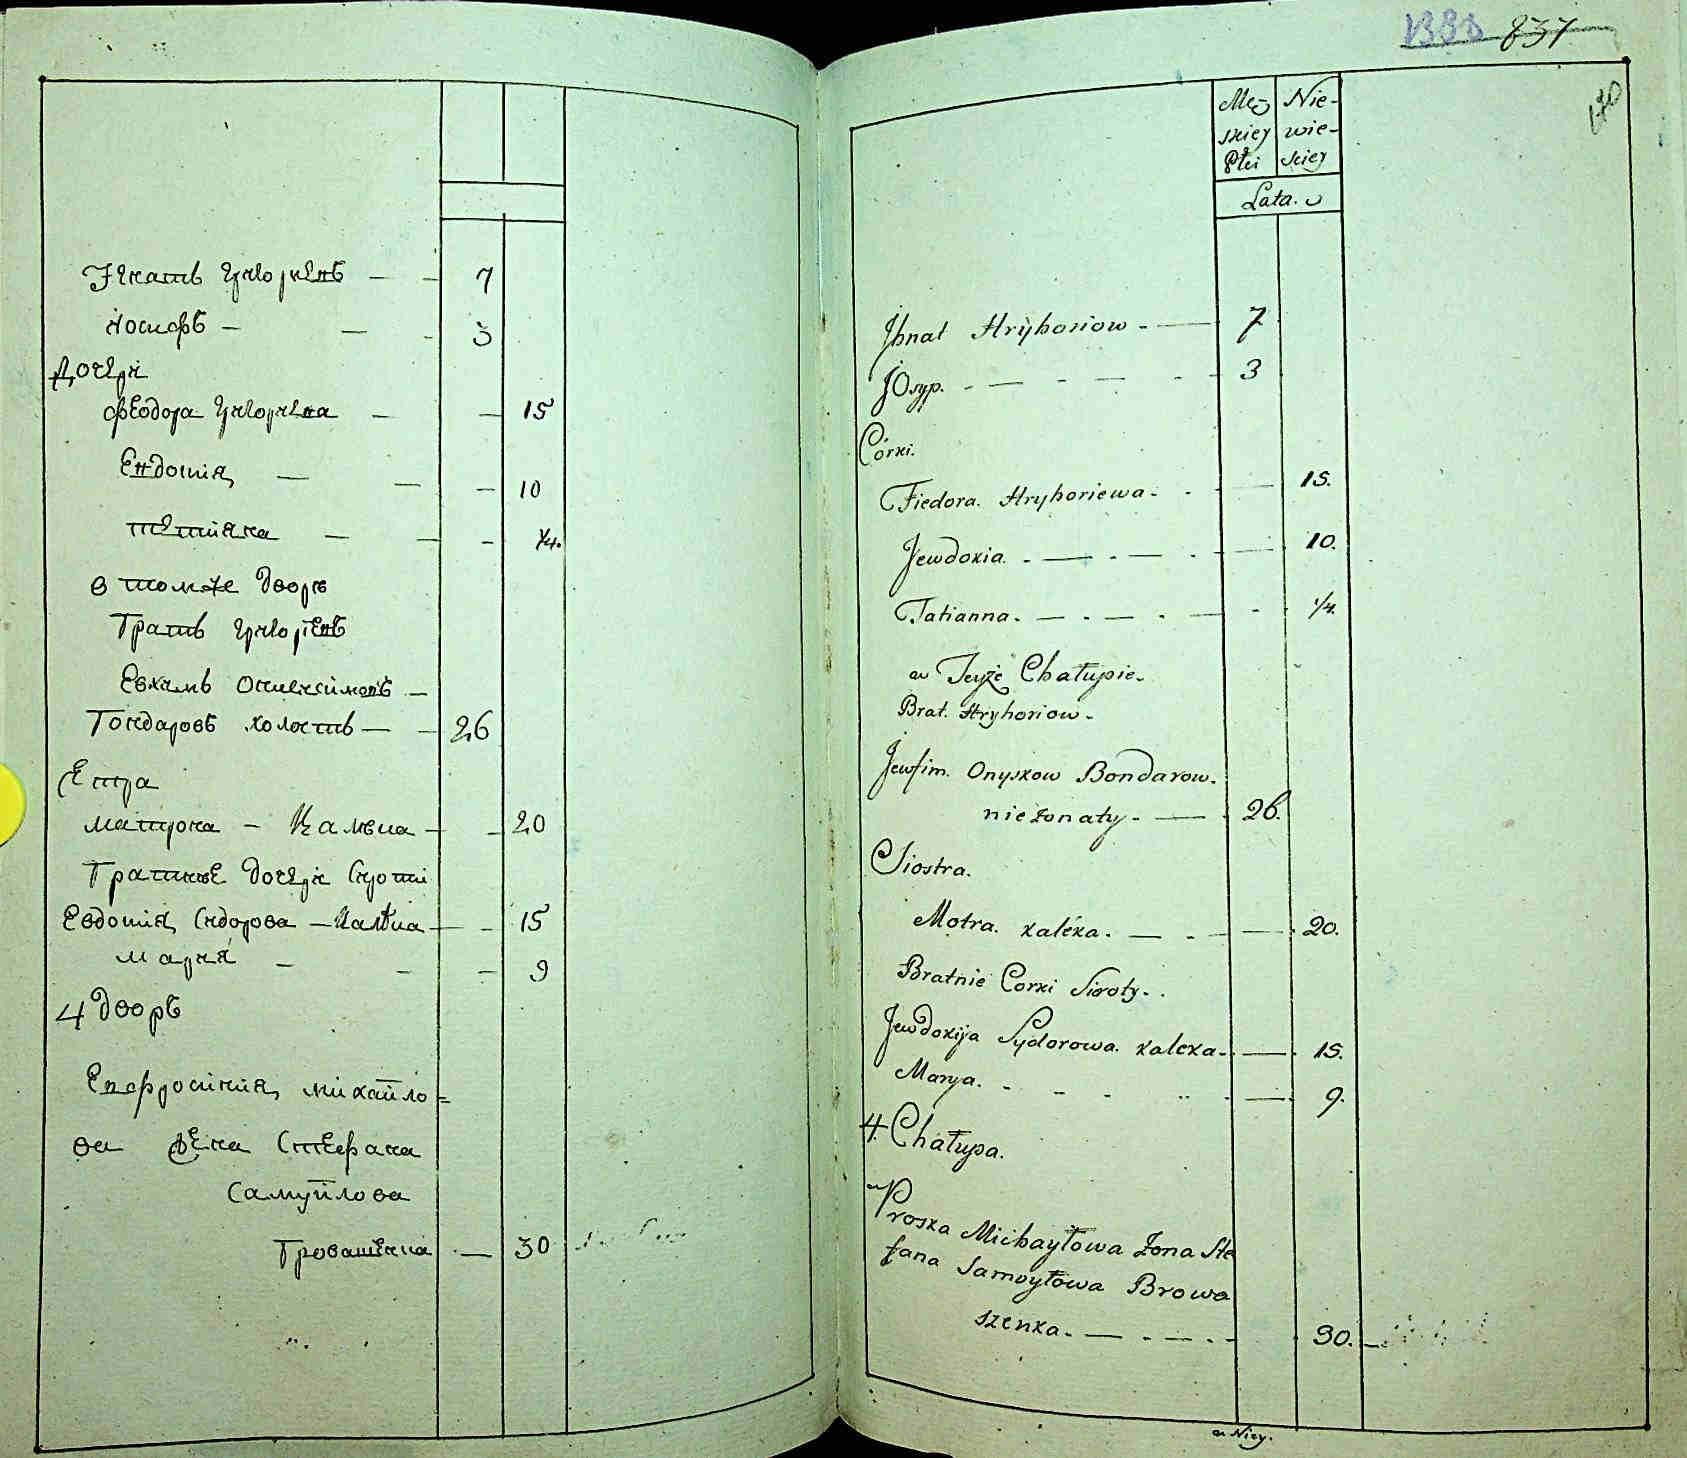 Игнатъ Григориевъ — — 7
иосифъ — — - 3
Дочери
феодора Григориева — — 15
Евдотия — — — 10
тетияна — — - 1/4.
в томже дворѣ
Братъ Григориевъ
Евхимъ Онисимовъ —
Бондаровъ холостъ — — 26
Сестра
матрона — Калека — - 20
Братние дочери Сироти
Евдотия Сидорова — Калека — - 15
Мария — - — 9
4 дворъ
Ефросиния михайло=
ва жена Стефана
Самуйлова
Бровашенка — 30
837
170
Męz Nie-
skiey wie-
Płci skiey
Lata.
Jhnat Hryhoriow - — 7
JOsyp. - — - — - 3
Córki.
Fiedora. Hryhoriewa - - — 15.
Jewdokia. - — - — - — 10.
Tatianna. — - — - — - 1/4.
w Teyże Chałupie.
Brat. Hryhoriow -
Jewfim. Onyskow Bondarow.
nieżonaty - — 26.
Siostra.
Motra. kaléka. — - — 20.
Bratnie Corki Siroty. .
Jewdokija Sydorowa. kaleka. — 15.
Marya. - - - — 9.
4. Chałupa.
Proska Michayłowa Żona Ste
fana Samoyłowa Browa
szenka. — - — - 30.
w Niey.